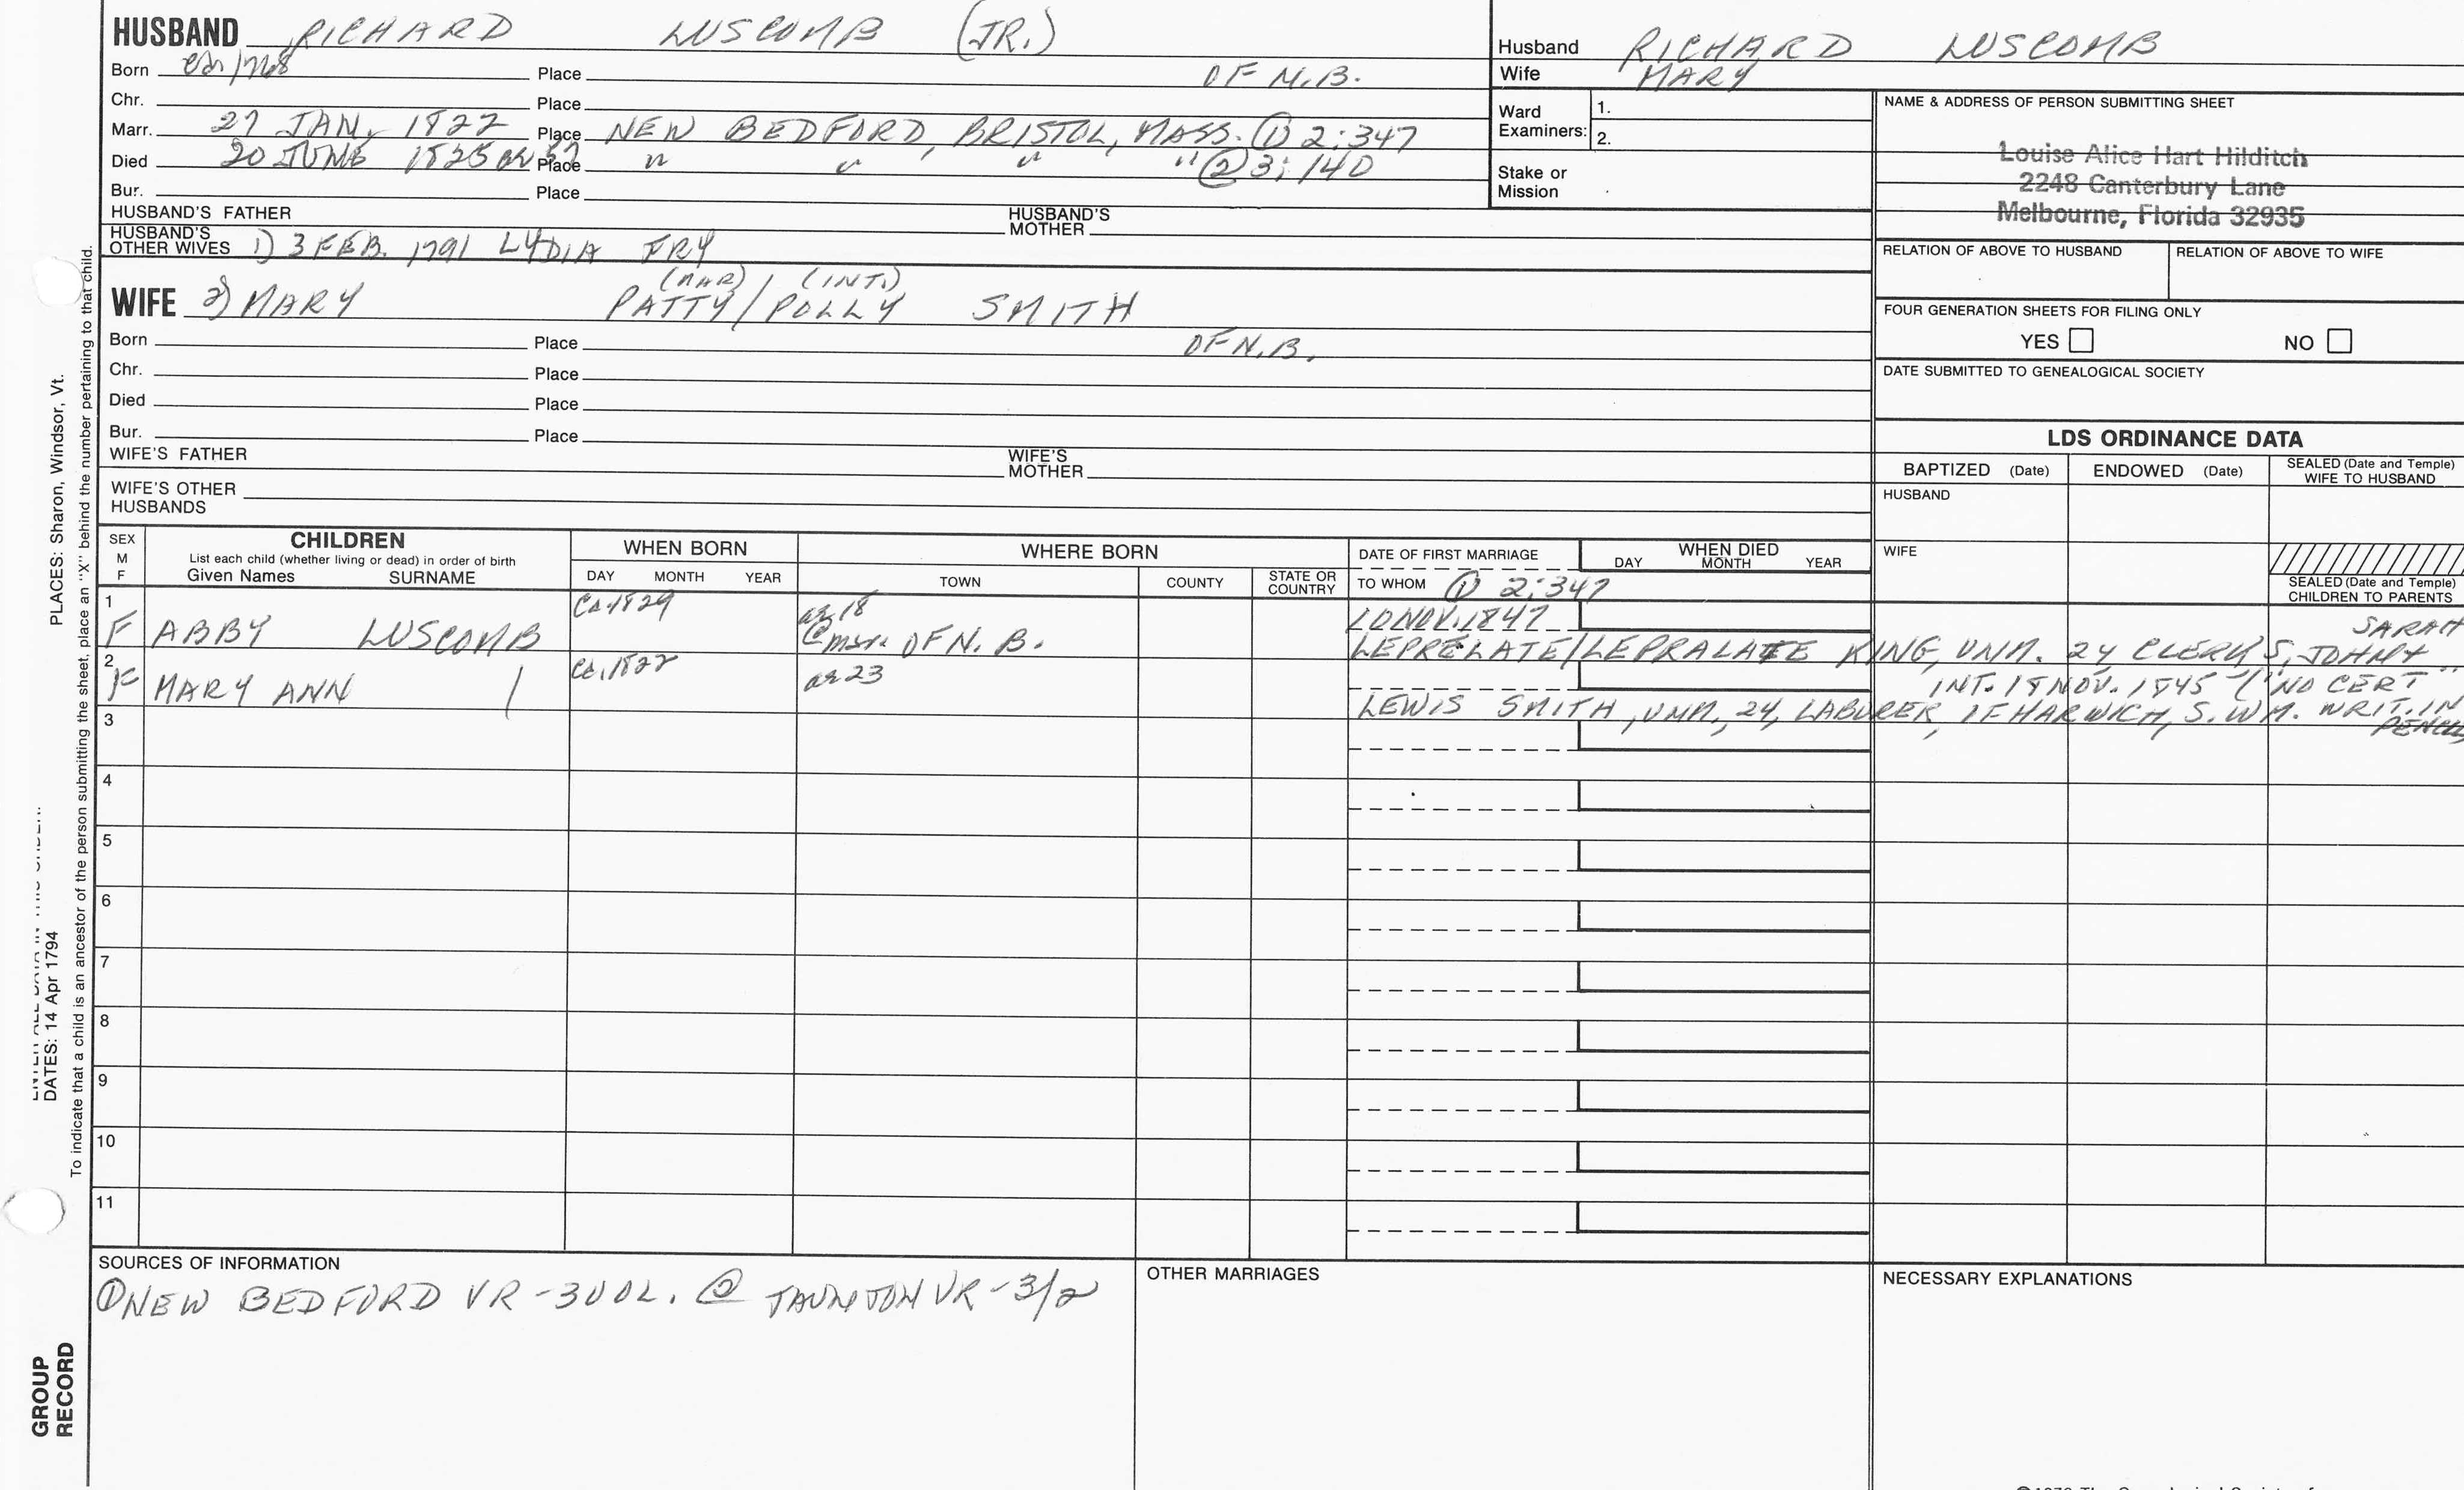 HUSBAND RICHARD LUSCOMB (JR.)
Born ca 1768 Place OF N.B.
Chr. Place
Marr. 27 JAN. 1822 Place NEW BEDFORD, BRISTOL, MASS. ① 2:347
Died 20 JUNE 1825 Place " " " " ② 3:140
Bur. Place
HUSBAND'S FATHER HUSBAND'S MOTHER
HUSBAND'S OTHER WIVES 1) 3 FEB. 1791 LYDIA FRY
(MAR) (INT.)
WIFE 2) MARY PATTY/POLLY SMITH
Born Place OF N.B.
Chr. Place
Died Place
Bur. Place
WIFE'S FATHER WIFE'S MOTHER
WIFE'S OTHER HUSBANDS
Husband RICHARD LUSCOMB
Wife MARY
Ward Examiners: 1.
2.
Stake or Mission
NAME & ADDRESS OF PERSON SUBMITTING SHEET
Louise Alice Hart Hilditch
2248 Canterbury Lane
Melbourne, Florida 32935
RELATION OF ABOVE TO HUSBAND RELATION OF ABOVE TO WIFE
FOUR GENERATION SHEETS FOR FILING ONLY
YES NO
DATE SUBMITTED TO GENEALOGICAL SOCIETY
LDS ORDINANCE DATA
BAPTIZED (Date) ENDOWED (Date) SEALED (Date and Temple) WIFE TO HUSBAND
HUSBAND
WIFE
SEALED (Date and Temple) CHILDREN TO PARENTS
SEX M F
CHILDREN
List each child (whether living or dead) in order of birth
Given Names SURNAME
WHEN BORN
DAY MONTH YEAR
WHERE BORN
TOWN COUNTY STATE OR COUNTRY
DATE OF FIRST MARRIAGE
TO WHOM ① 2:347
WHEN DIED
DAY MONTH YEAR
1 ca. 1829 ae 18 10 NOV. 1847 SARAH
F ABBY LUSCOMB OF N. B. LEPRELATE/LEPRALATE KING, UNM. 24 CLERK S. JOHN +
2 ca. 1822 ae 23 INT. 18 NOV. 1845 ("NO CERT"
F MARY ANN / LEWIS SMITH, UNM., 24, LABORER, OF HARWICH, S. WM. WRIT. IN
PENCIL
3
4
5
6
7
8
9
10
11
SOURCES OF INFORMATION
① NEW BEDFORD VR - 3 VOL. ② TAUNTON VR - 3/2
OTHER MARRIAGES
NECESSARY EXPLANATIONS
PLACES: Sharon, Windsor, Vt.
DATES: 14 Apr 1794
To indicate that a child is an ancestor of the person submitting the sheet, place an "X" behind the number pertaining to that child.
GROUP RECORD